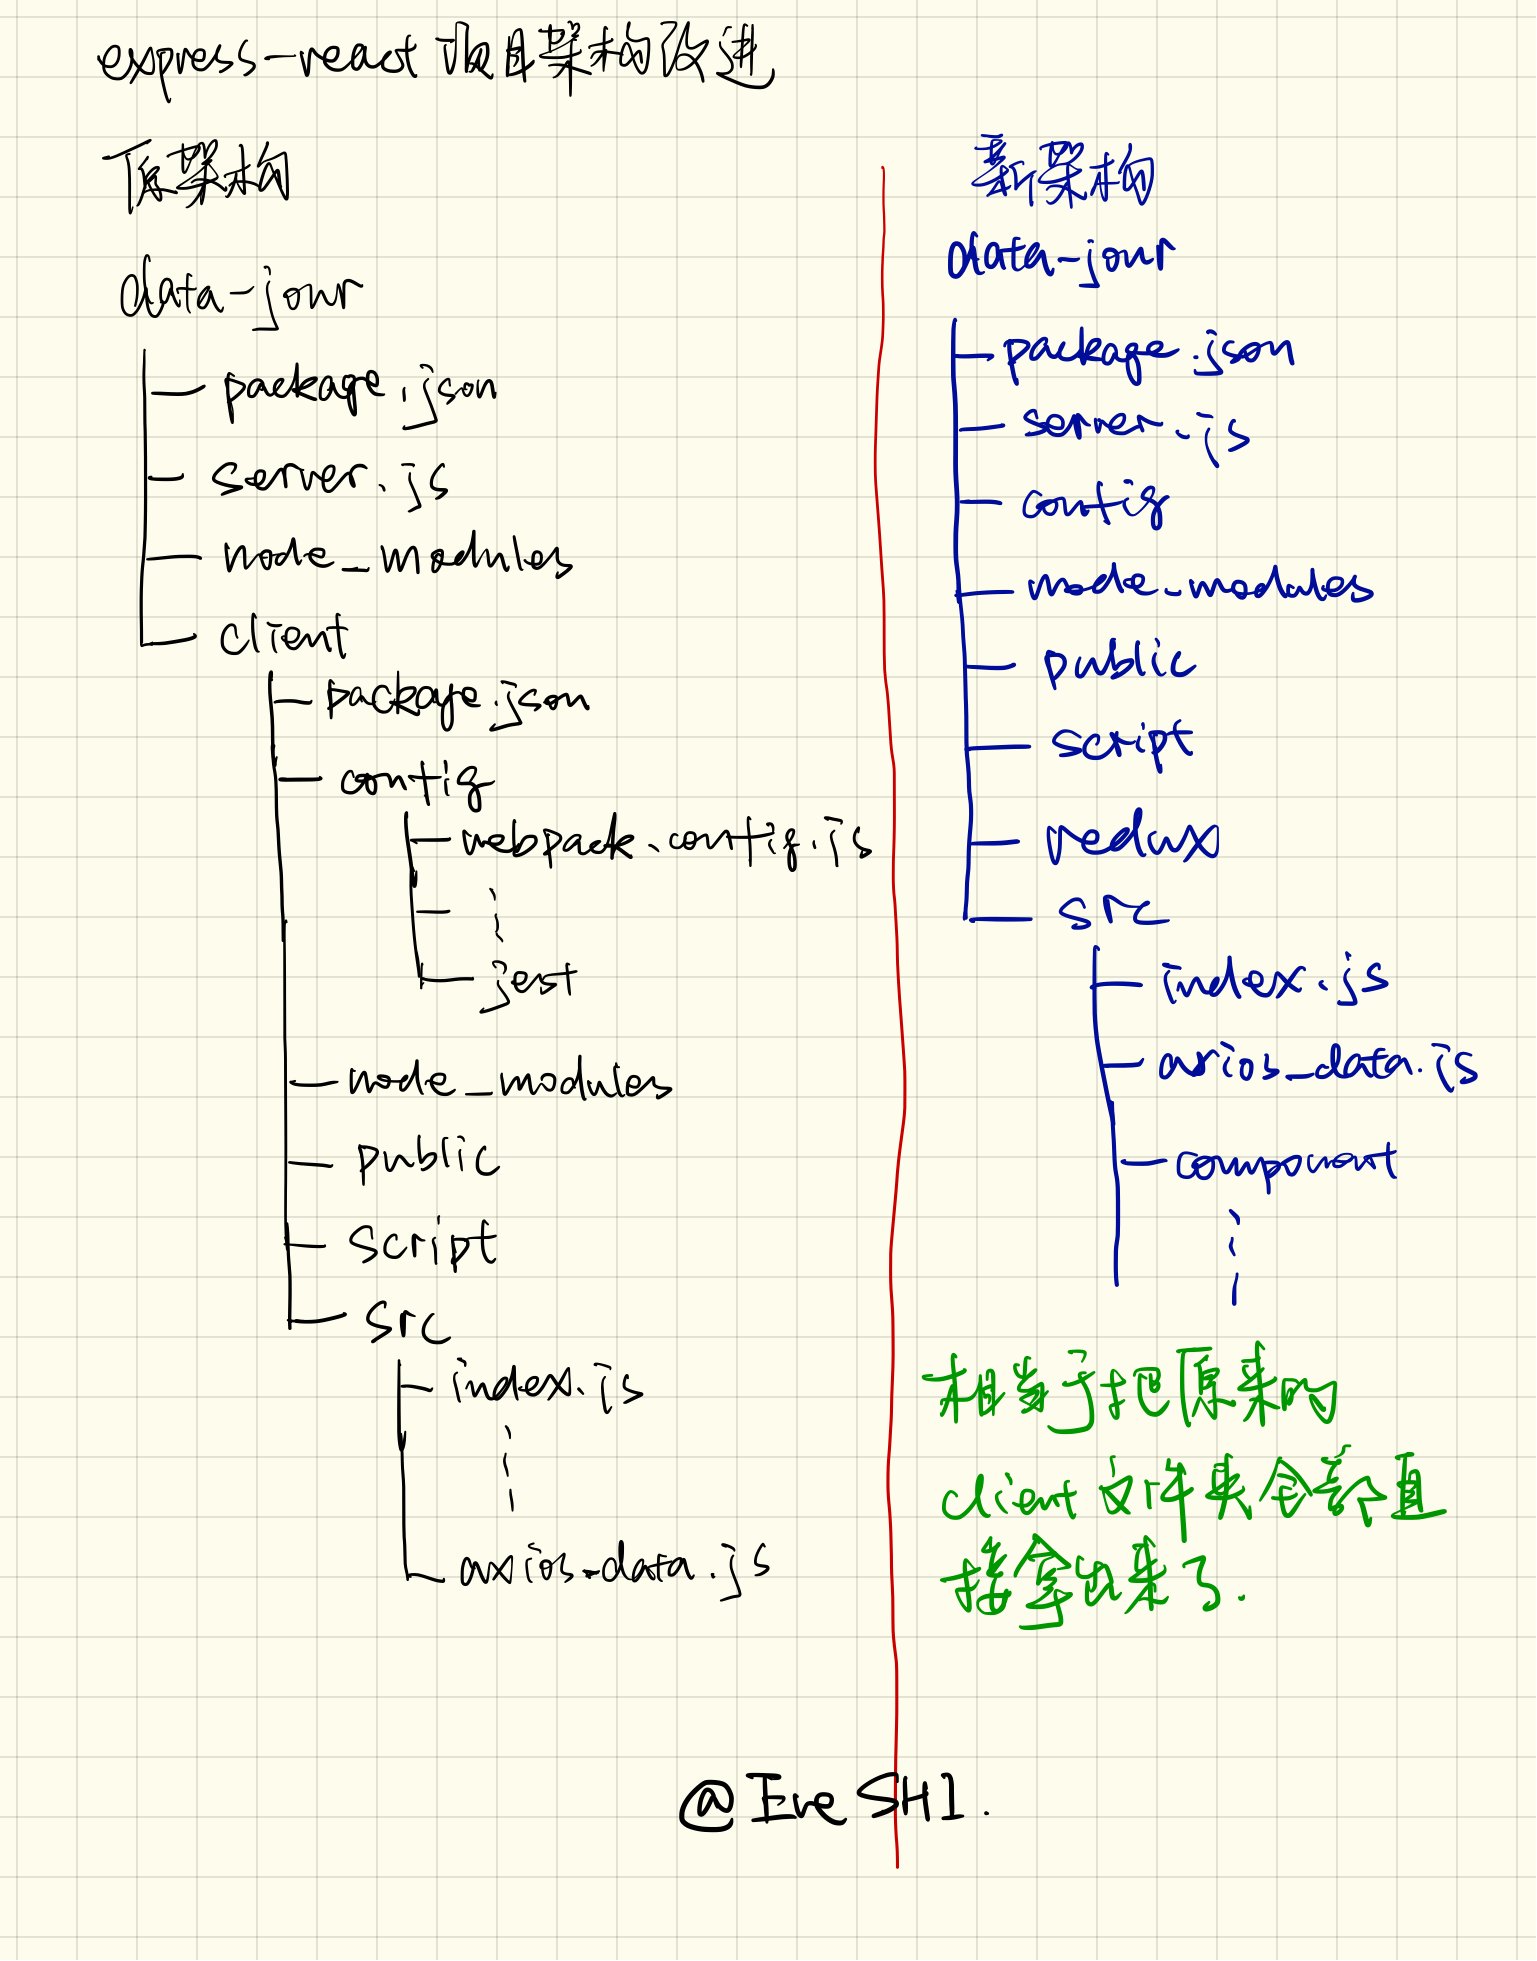 express-react 项目架构改进
原架构
data-jour
package.json
server.js
node_modules
client
package.json
config
webpack.config.js
jest
node_modules
public
script
src
index.js
axios-data.js
新架构
data-jour
package.json
server.js
config
node_modules
public
script
redux
src
index.js
axios_data.js
component
相当于把原来的
client 文件夹全部直
接拿出来了.
@Eve SHI.